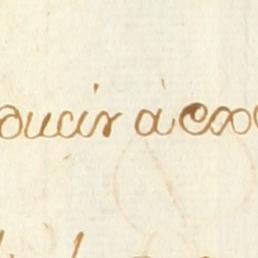 ducir à exo